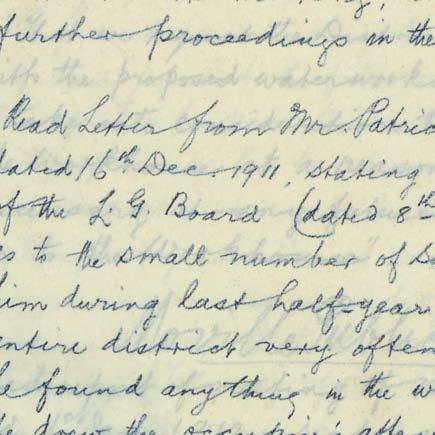 further proceedings in the
with the proposed waterworks
Read Letter from Mr. Patric
dated 16th Dec 1911, stating
of the L. G. Board (dated 8th
as to the small number of Sa
him during last half-year
entire district very often
he found anything in the w
he drew the occupiers' atten